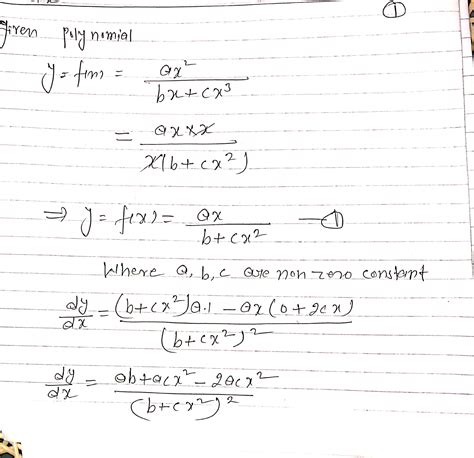 ①
Given polynomial
y = f(x) = ax² / (bx + cx³)
= (ax × x) / (x(b + cx²))
⇒ y = f(x) = ax / (b + cx²) —①
Where a, b, c are non zero constant
dy/dx = ((b + cx²)a·1 − ax(0 + 2cx)) / (b + cx²)²
dy/dx = (ab + acx² − 2acx²) / (b + cx²)²